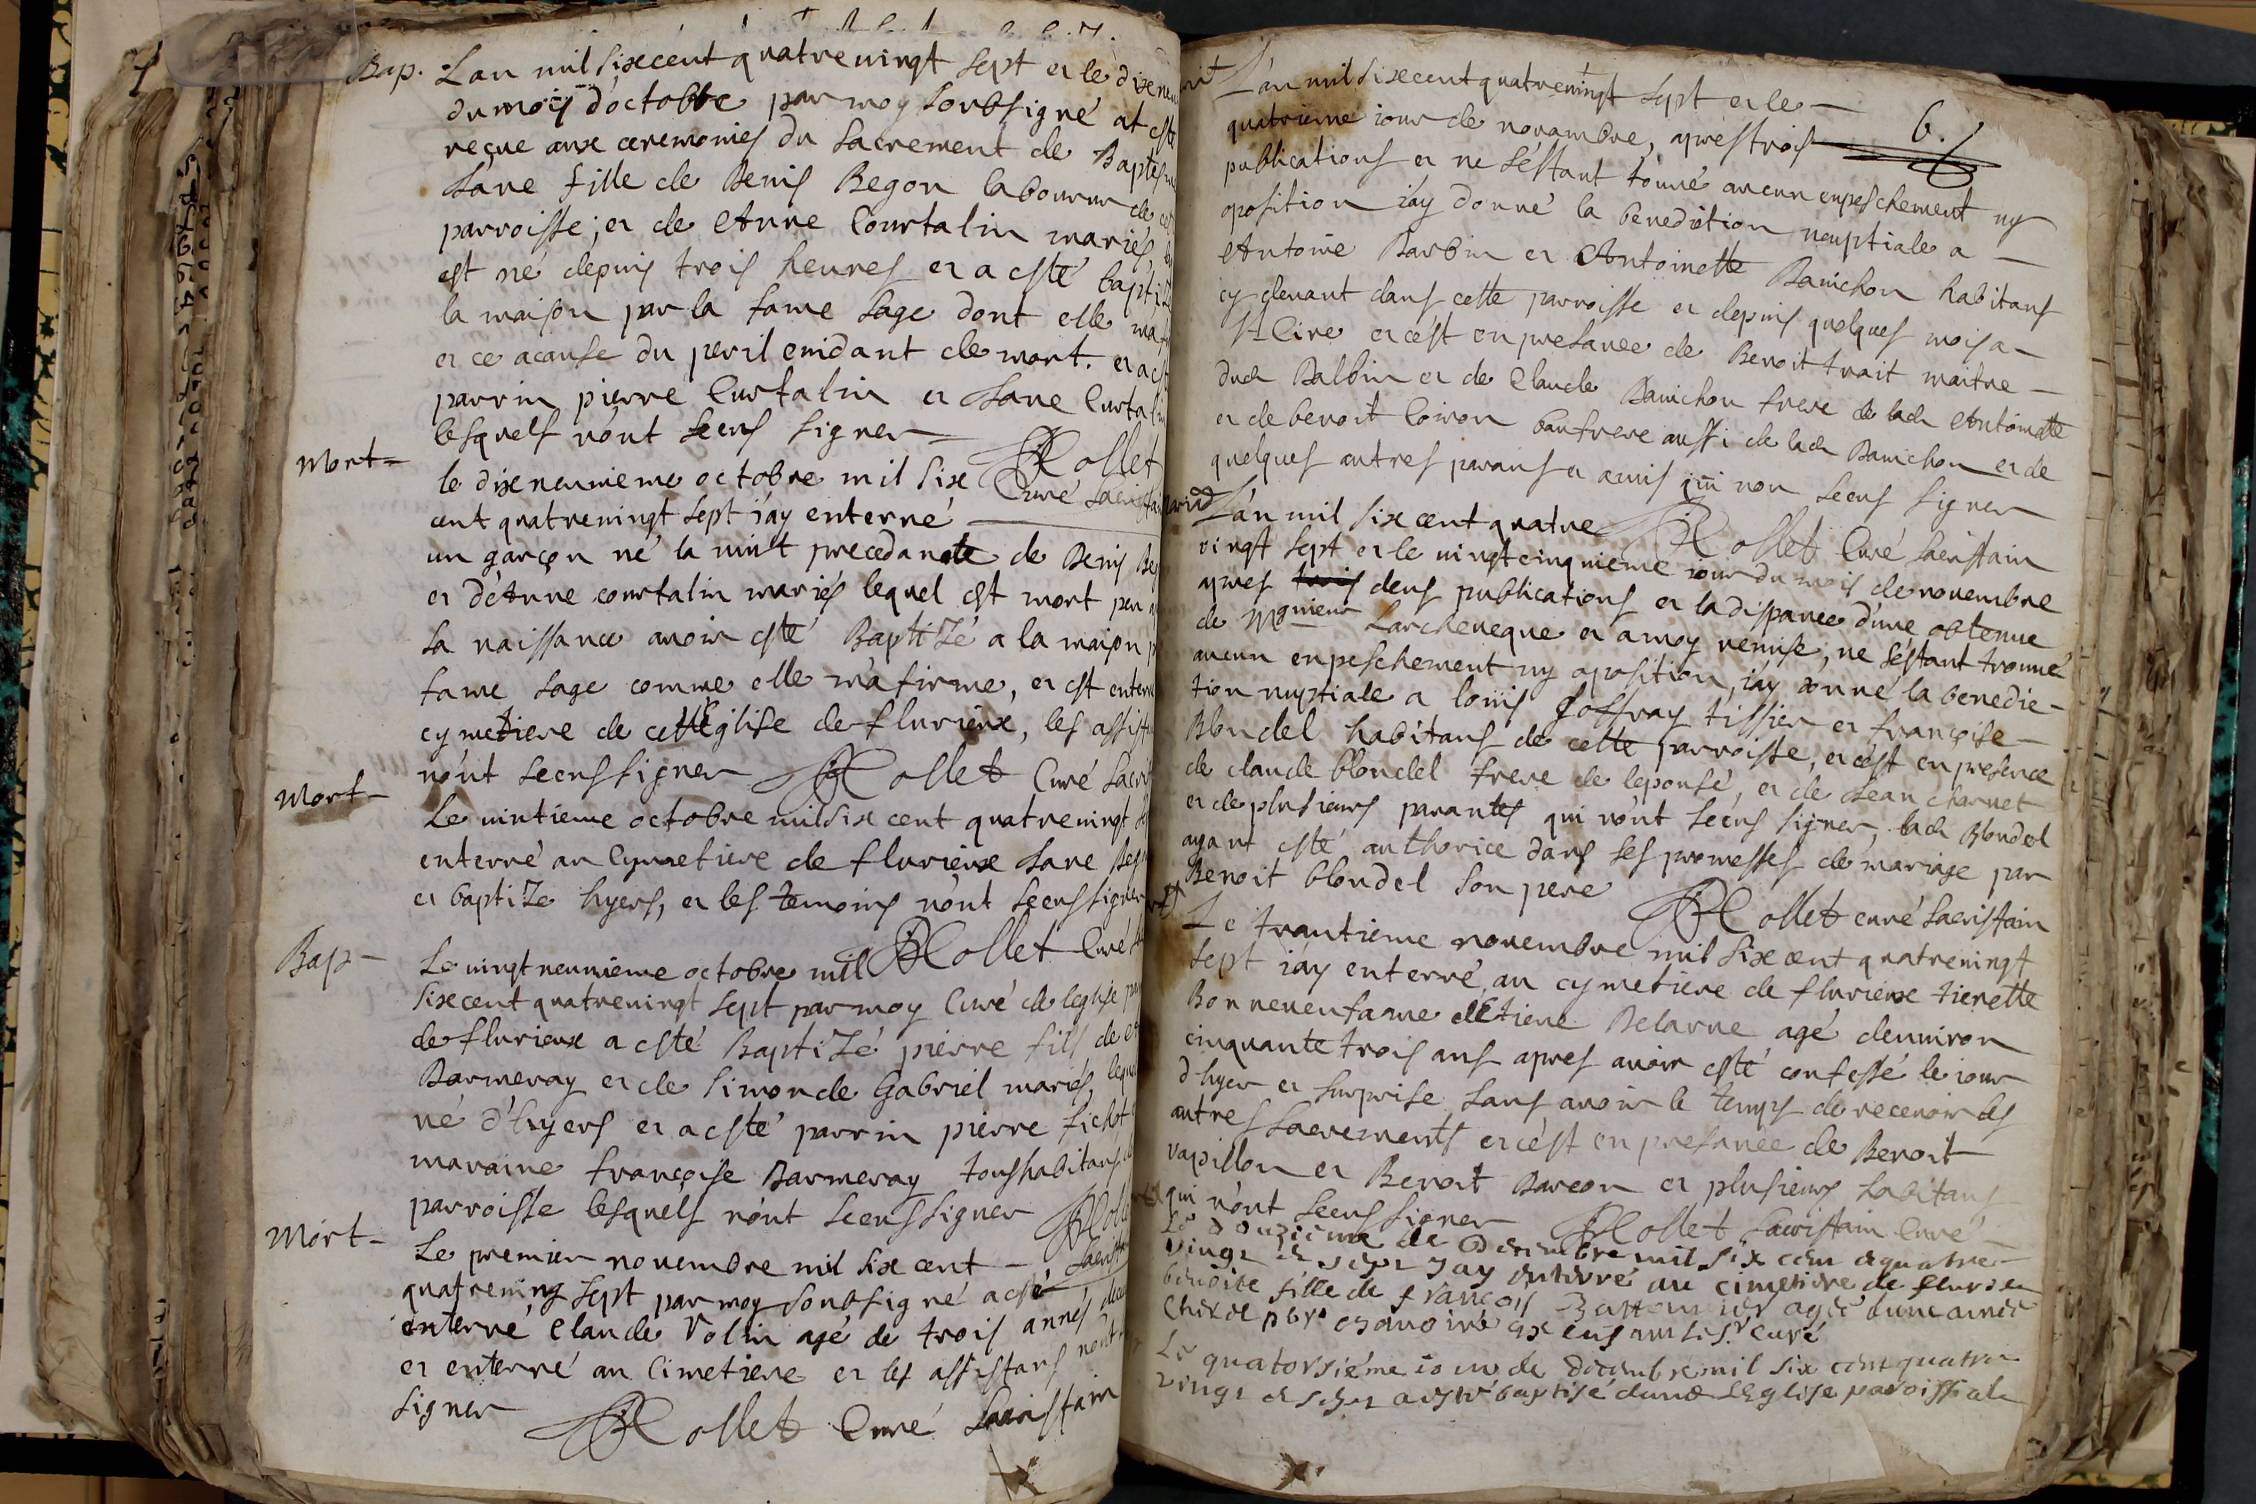 Bap. L'an mil sixcent quatreuingt sept et le dixneu
du mois d'octobre par moy soubsigné at esté
reçue aux ceremonies du sacrement de Baptesme
Jane fille de Denis Begon laboureur de cet
parroisse; et de Anne Courtalin mariés,
est né depuis trois heures et a esté baptiz
la maison par la fame sage dont elle ma
et ce acause du peril euidant de mort. et a est
parrin pierre Curtalin et Jane Curtalin
lesquels n'ont sceus signer
JRollet
Curé sacristain
Mort
le dixneuuieme octobre mil six
cent quatreuingt sept i'ay enterré
un garçon né la nuit precedante de Denis Be
et d'Anne courtalin mariés lequel est mort peu a
sa naissance auoir esté Baptizé a la maison p
fame sage comme elle m'a firme, et est enterré
cymetiere de cette église de flurieux, les assista
n'ont sceus signer JRollet Curé sacri
Mort
Le uintieme octobre mil six cent quatreuingt
enterré au Cymetiere de flurieux Jane Beg
et baptize hyers, et les temoins n'ont sceus signer
JRollet Curé
Bap
Le uingt neuuieme octobre mil
sixcent quatreuingt sept par moy Curé de leglise
de flurieux a esté Baptizé pierre fils de
Darmeray et de Simonde Gabriel mariés, leque
né d'hyers et a esté parrin pierre fichet
maraine françoise Darmeray tous habitans
parroisse lesquels n'ont sceus signer JRolle
Mort
Le premier nouembre mil six cent
quatreuing sept par moy soubsigné a esté
enterré Claude Volin agé de trois annés
et enterré au Cimetiere et les assistans n'ont
signer JRollet Curé sacristain
6.
L'an mil sixcent quatreuingt sept et le
quatrieme iour de nouambre, apres trois
publications et ne s'estant touué aucun enpeschement ny
oposition i'ay donné la benediction neuptiale a
Antoine Barbin et Antoinette Danichon habitans
cy deuant dans cette parroisse et depuis quelques mois a
St Cire et c'est en presance de Benoit trait maitre
dud Balbin et de Claude Danichon frere de lad Antoinette
et de benoit Coiron baufrere aussi de lad Danichon et de
quelques autres parans et amis qui non sceus signer
JRollet Curé sacristain
L'an mil six cent quatre
uingt sept et le uingtcinquieme iour du mois de nouembre
apres deus publications et la dispance d'une obtenue
de Mgnieur Larcheueque et a moy remise, ne s'estant trouué
aucun enpeschement ny oposition, i'ay donné la benedic-
tion nuptiale a loüis Joffray tissier et françoise
Blondel habitans de cette parroisse, et c'est en presence
de claude blondel frere de lepousé, et de Jean charuet
et de plusieurs parantes qui n'ont sceus signer, lad Blondel
ayant esté authorice dans ses promesses de mariage par
Benoit blondel son pere
JRollet curé sacristain
Le trantieme nouembre mil six cent quatreuingt
sept i'ay enterré au cymetiere de flurieux tienette
Bonneuen fame Delarue agé denuiron
cinquante trois ans apres auoir esté confessé le iour
d'hyer et surprise sans auoir le temps de receuoir les
autres sacrements et c'est en presance de Benoit
papillon et Benoit Darcon et plusieurs habitans
qui n'ont sceus signer JRollet sacristain Curé
Le douzieme de decembre mil six cent quatre
vingt et sept Jay enterré au cimetiere de
benoite fille de françois agée d'une année
curé
Le quatorsième iour de decembre mil six cent quatre
vingt et sept a esté baptisé dans l'Eglise paroissiale